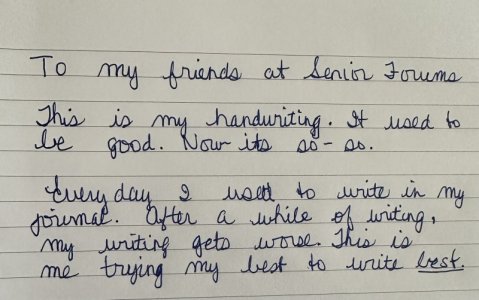 To my friends at Senior Forums
This is my handwriting. It used to
be good. Now its so-so.
Every day I used to write in my
journal. After a while of writing,
my writing gets worse. This is
me trying my best to write best.